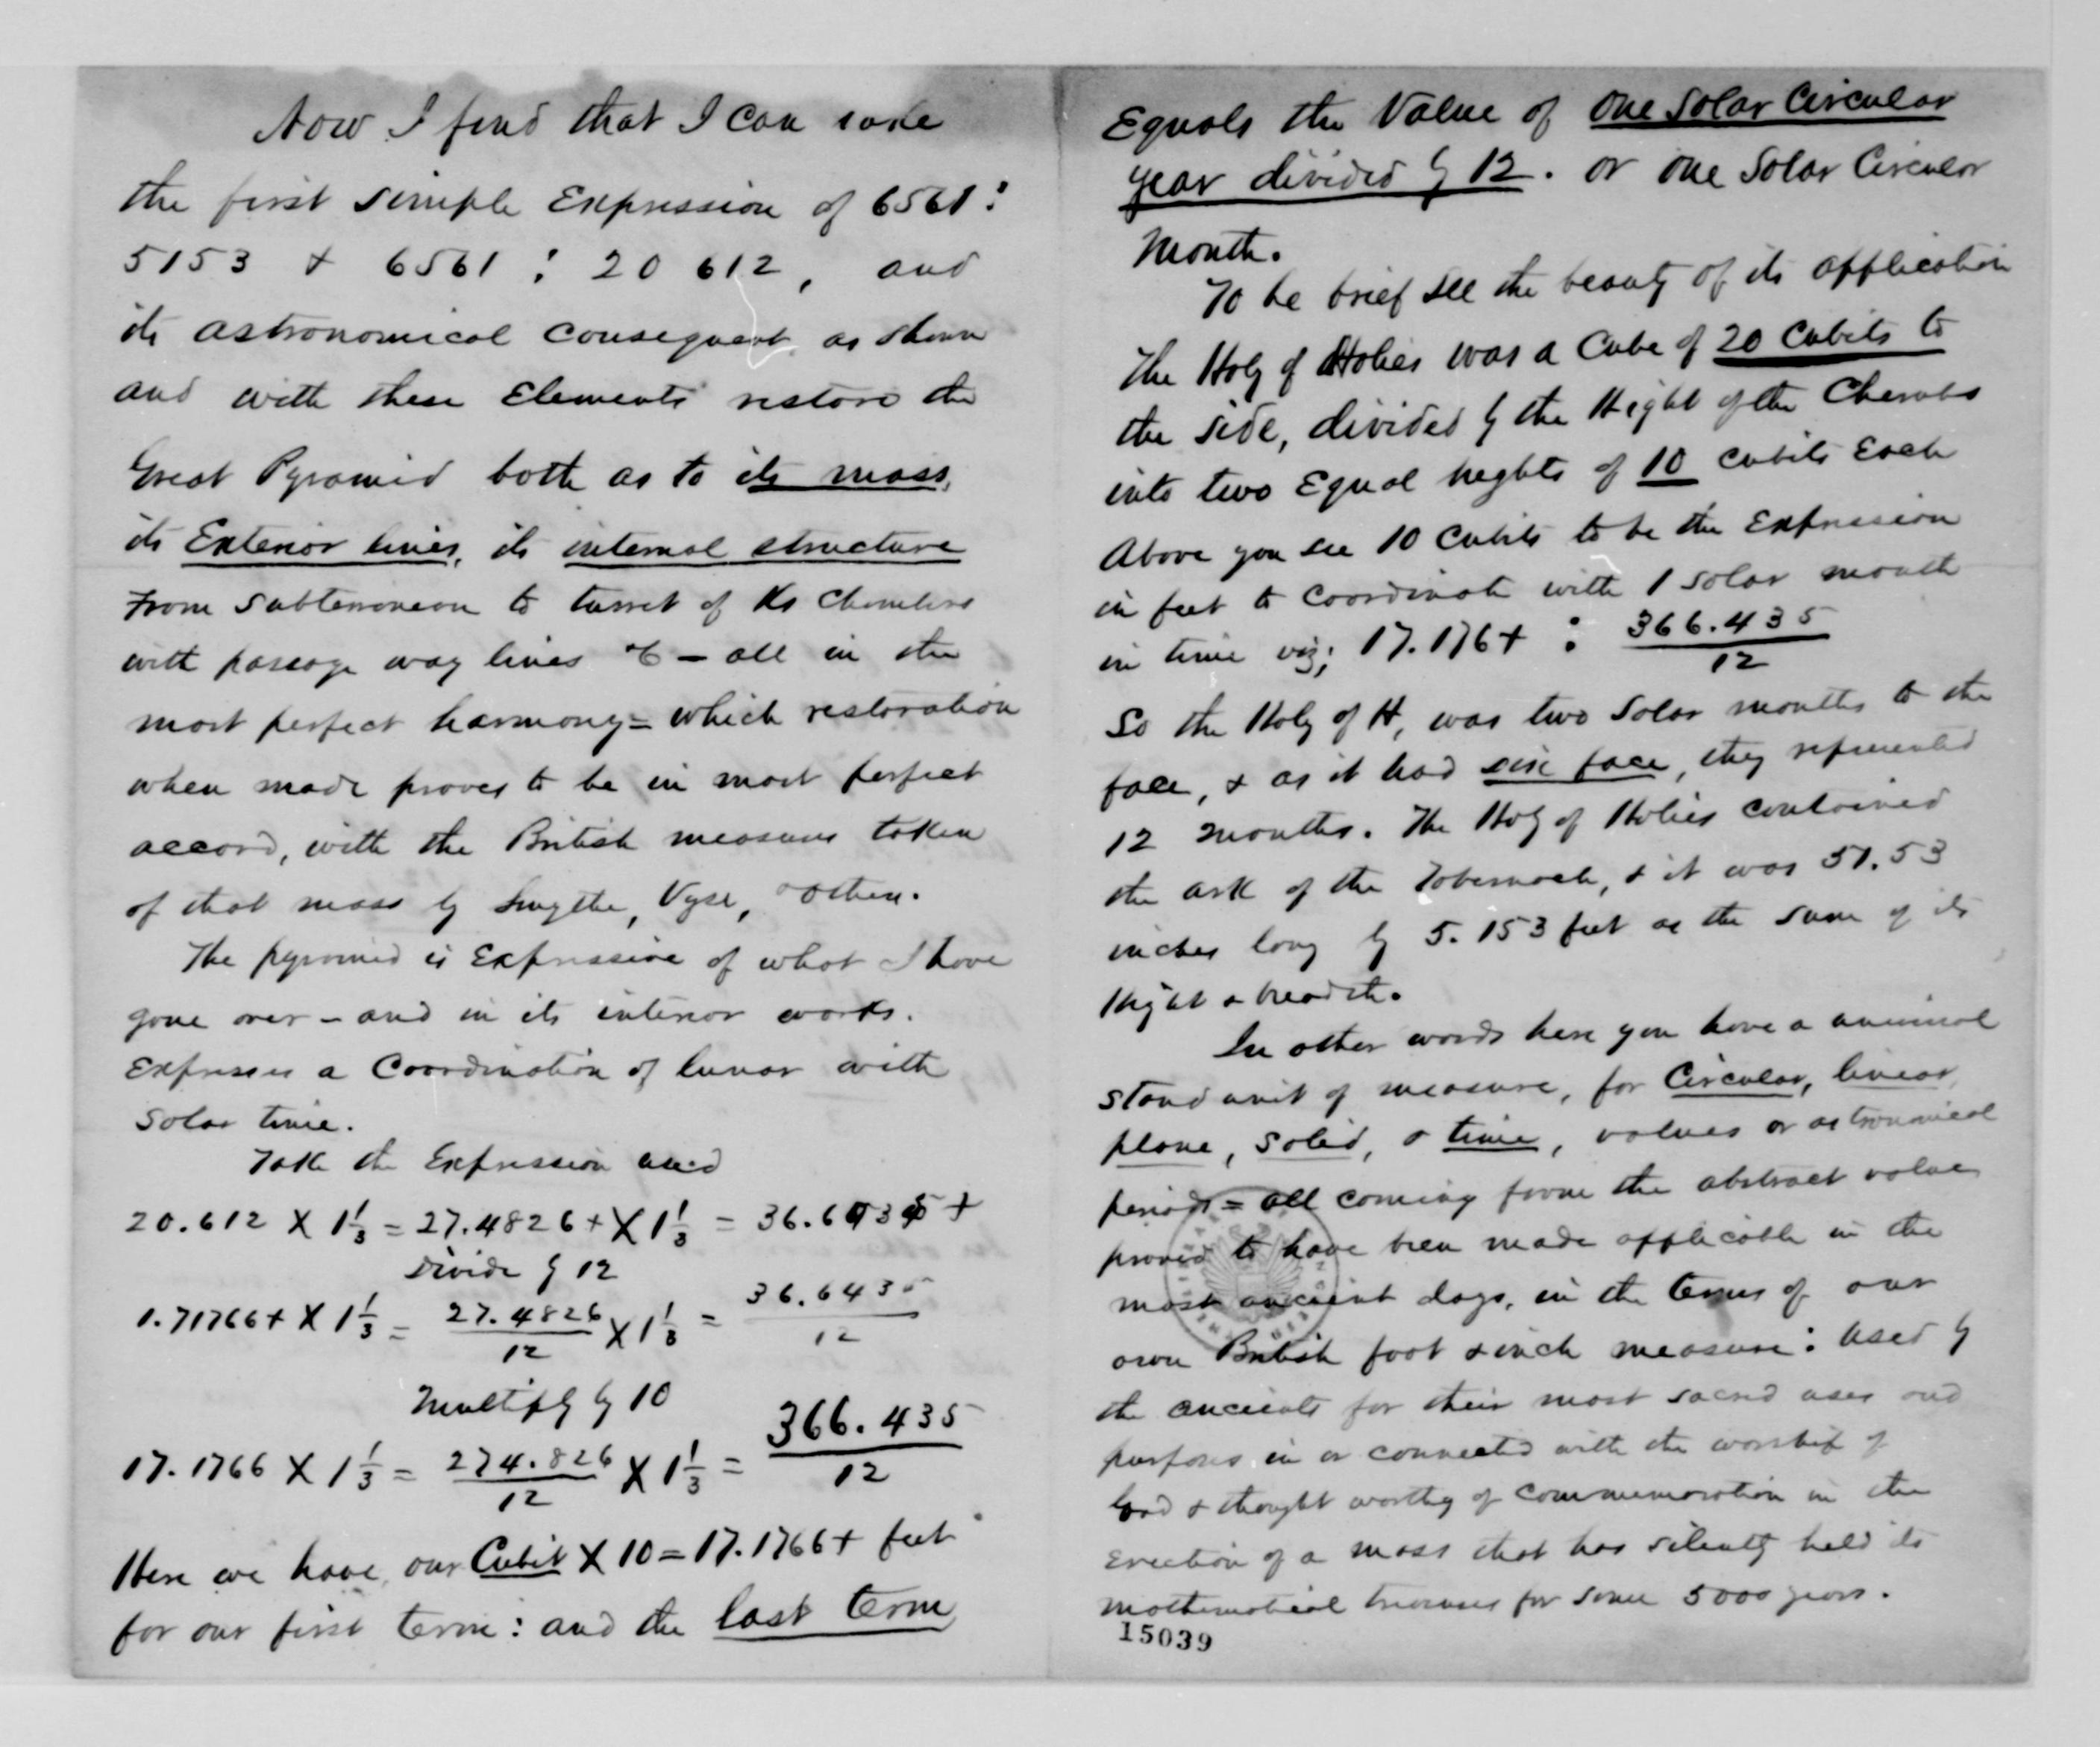 Now I find that I can take
the first simple Expression of 6561 :
5153 & 6561 : 20 612, and
its astronomical consequent as shown
and with these Elements restore the
Great Pyramid both as to its mass,
its Exterior lines, its internal structure
From subterranean to turret of Ks chambers
with passage way lines &c – all in the
most perfect harmony = which restoration
when made proves to be in most perfect
accord, with the British measures taken
of that mass by Smythe, Vyse, & others.
The pyramid is Expressive of what I have
gone over – and in its interior works.
Expresses a Coordination of lunar with
Solar time.
Take the Expression used
20.612 X 1 1/3 = 27.4826+ X 1 1/3 = 36.6435+
Divide by 12
1.71766+ X 1 1/3 = 27.4826/12 X 1 1/3 = 36.6435/12
Multiply by 10
17.1766 X 1 1/3 = 274.826/12 X 1 1/3 = 366.435/12
Here we have, our Cubit X 10 = 17.1766+ feet
for our first term : and the last term
Equals the Value of One Solar Circular
year divided by 12. or one Solar Circular
Month.
To be brief see the beauty of its application
The Holy of Holies was a Cube of 20 Cubits to
the side, divided by the Hight of the Cherubs
into two Equal heghts of 10 cubits Each
Above you see 10 Cubits to be the Expression
in feet to coordinate with 1 solar month
in time viz; 17.176+ : 366.435/12
So the Holy of H, was two Solar months to the
face, & as it had six face, they represented
12 months. The Holy of Holies contained
the ark of the Tabernacle, & it was 51.53
inches long by 5.153 feet as the sum of its
Hight & breadth.
In other words here you have a universal
stand unit of measure, for Circular, linear,
plane, solid, & time, values or astronomical
periods = all coming from the abstract value
proved to have been made applicable in the
most ancient days, in the terms of our
own British foot & inch measure : used by
the ancients for their most sacred uses and
purposes in or connected with the worship of
God & thought worthy of commemoration in the
Erection of a mass that has silently held its
mathematical treasures for some 5000 years.
15039